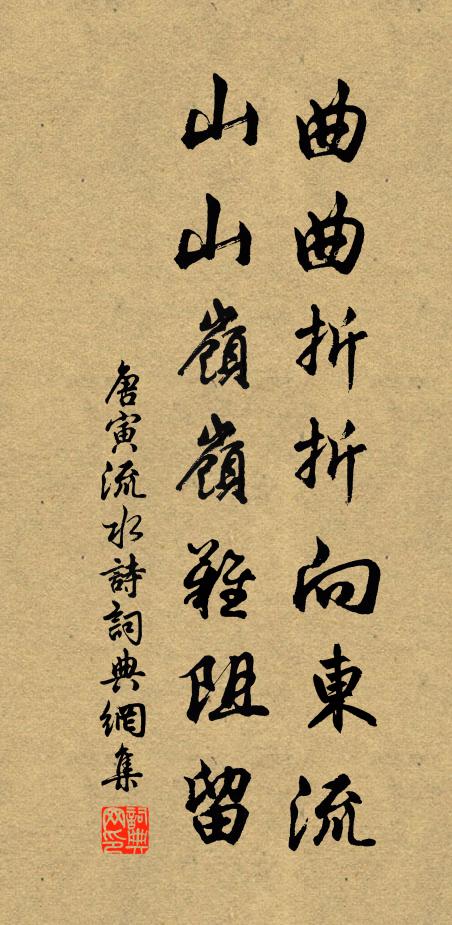 曲曲折折向東流
山山嶺嶺難阻留
唐寅流水詩詞典網集
詞典
网印